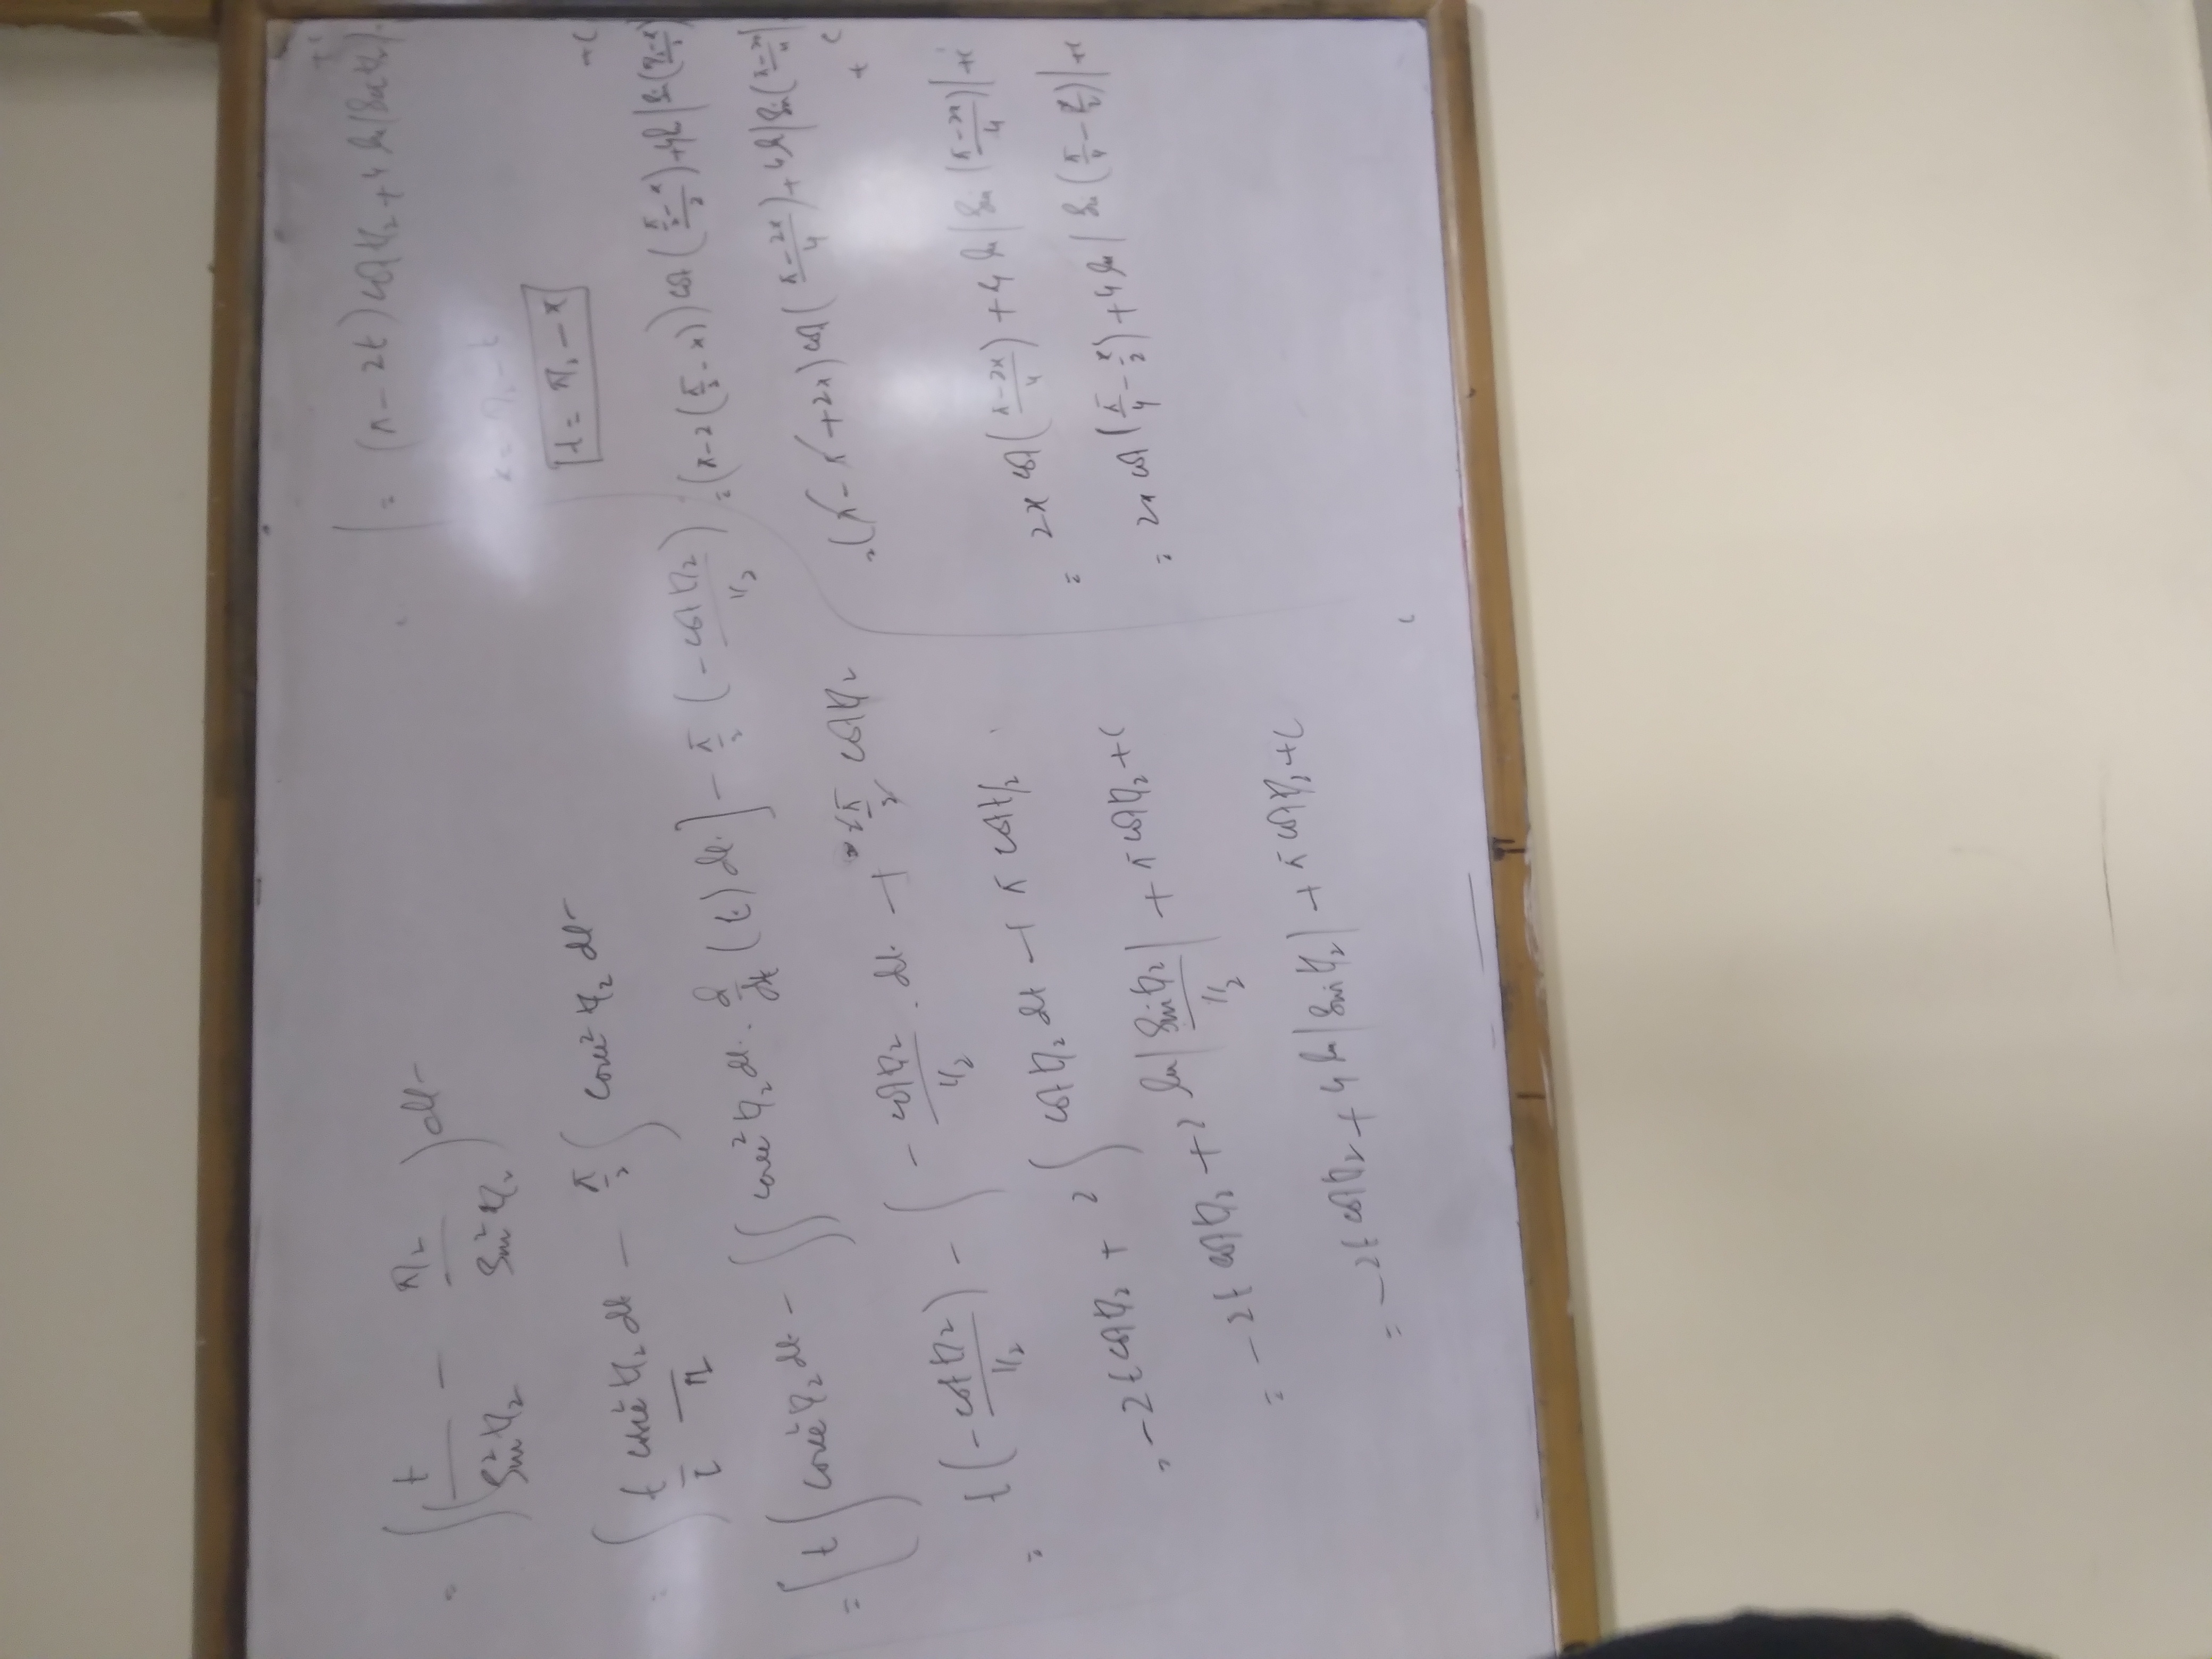 = ∫ ( t / sin² t/2 − π/2 / sin² t/2 ) dt
= ∫ t cosec² t/2 dt − π/2 ∫ cosec² t/2 dt
I II
= [ t ∫ cosec² t/2 dt − ∫∫ cosec² t/2 dt . d/dt (t) dt . ] − π/2 ( − cot t/2 / 1/2 )
= t ( − cot t/2 / 1/2 ) − ∫ − cot t/2 / 1/2 . dt + 2π/2 cot t/2
= −2t cot t/2 + 2 ∫ cot t/2 dt + π cot t/2
= −2t cot t/2 + 2 ln | sin t/2 / 1/2 | + π cot t/2 + C
= −2t cot t/2 + 4 ln | sin t/2 | + π cot t/2 + C
= (π − 2t) cot t/2 + 4 ln | sin t/2 | + C
x = π/2 − t
t = π/2 − x
= ( π − 2 ( π/2 − x ) ) cot ( π/2 − x / 2 ) + 4 ln | sin ( π/2 − x / 2 ) | + C
= ( π − π + 2x ) cot ( π − 2x / 4 ) + 4 ln | sin ( π − 2x / 4 ) | + C
= 2x cot ( π − 2x / 4 ) + 4 ln | sin ( π − 2x / 4 ) | + C
= 2x cot ( π/4 − x/2 ) + 4 ln | sin ( π/4 − x/2 ) | + C